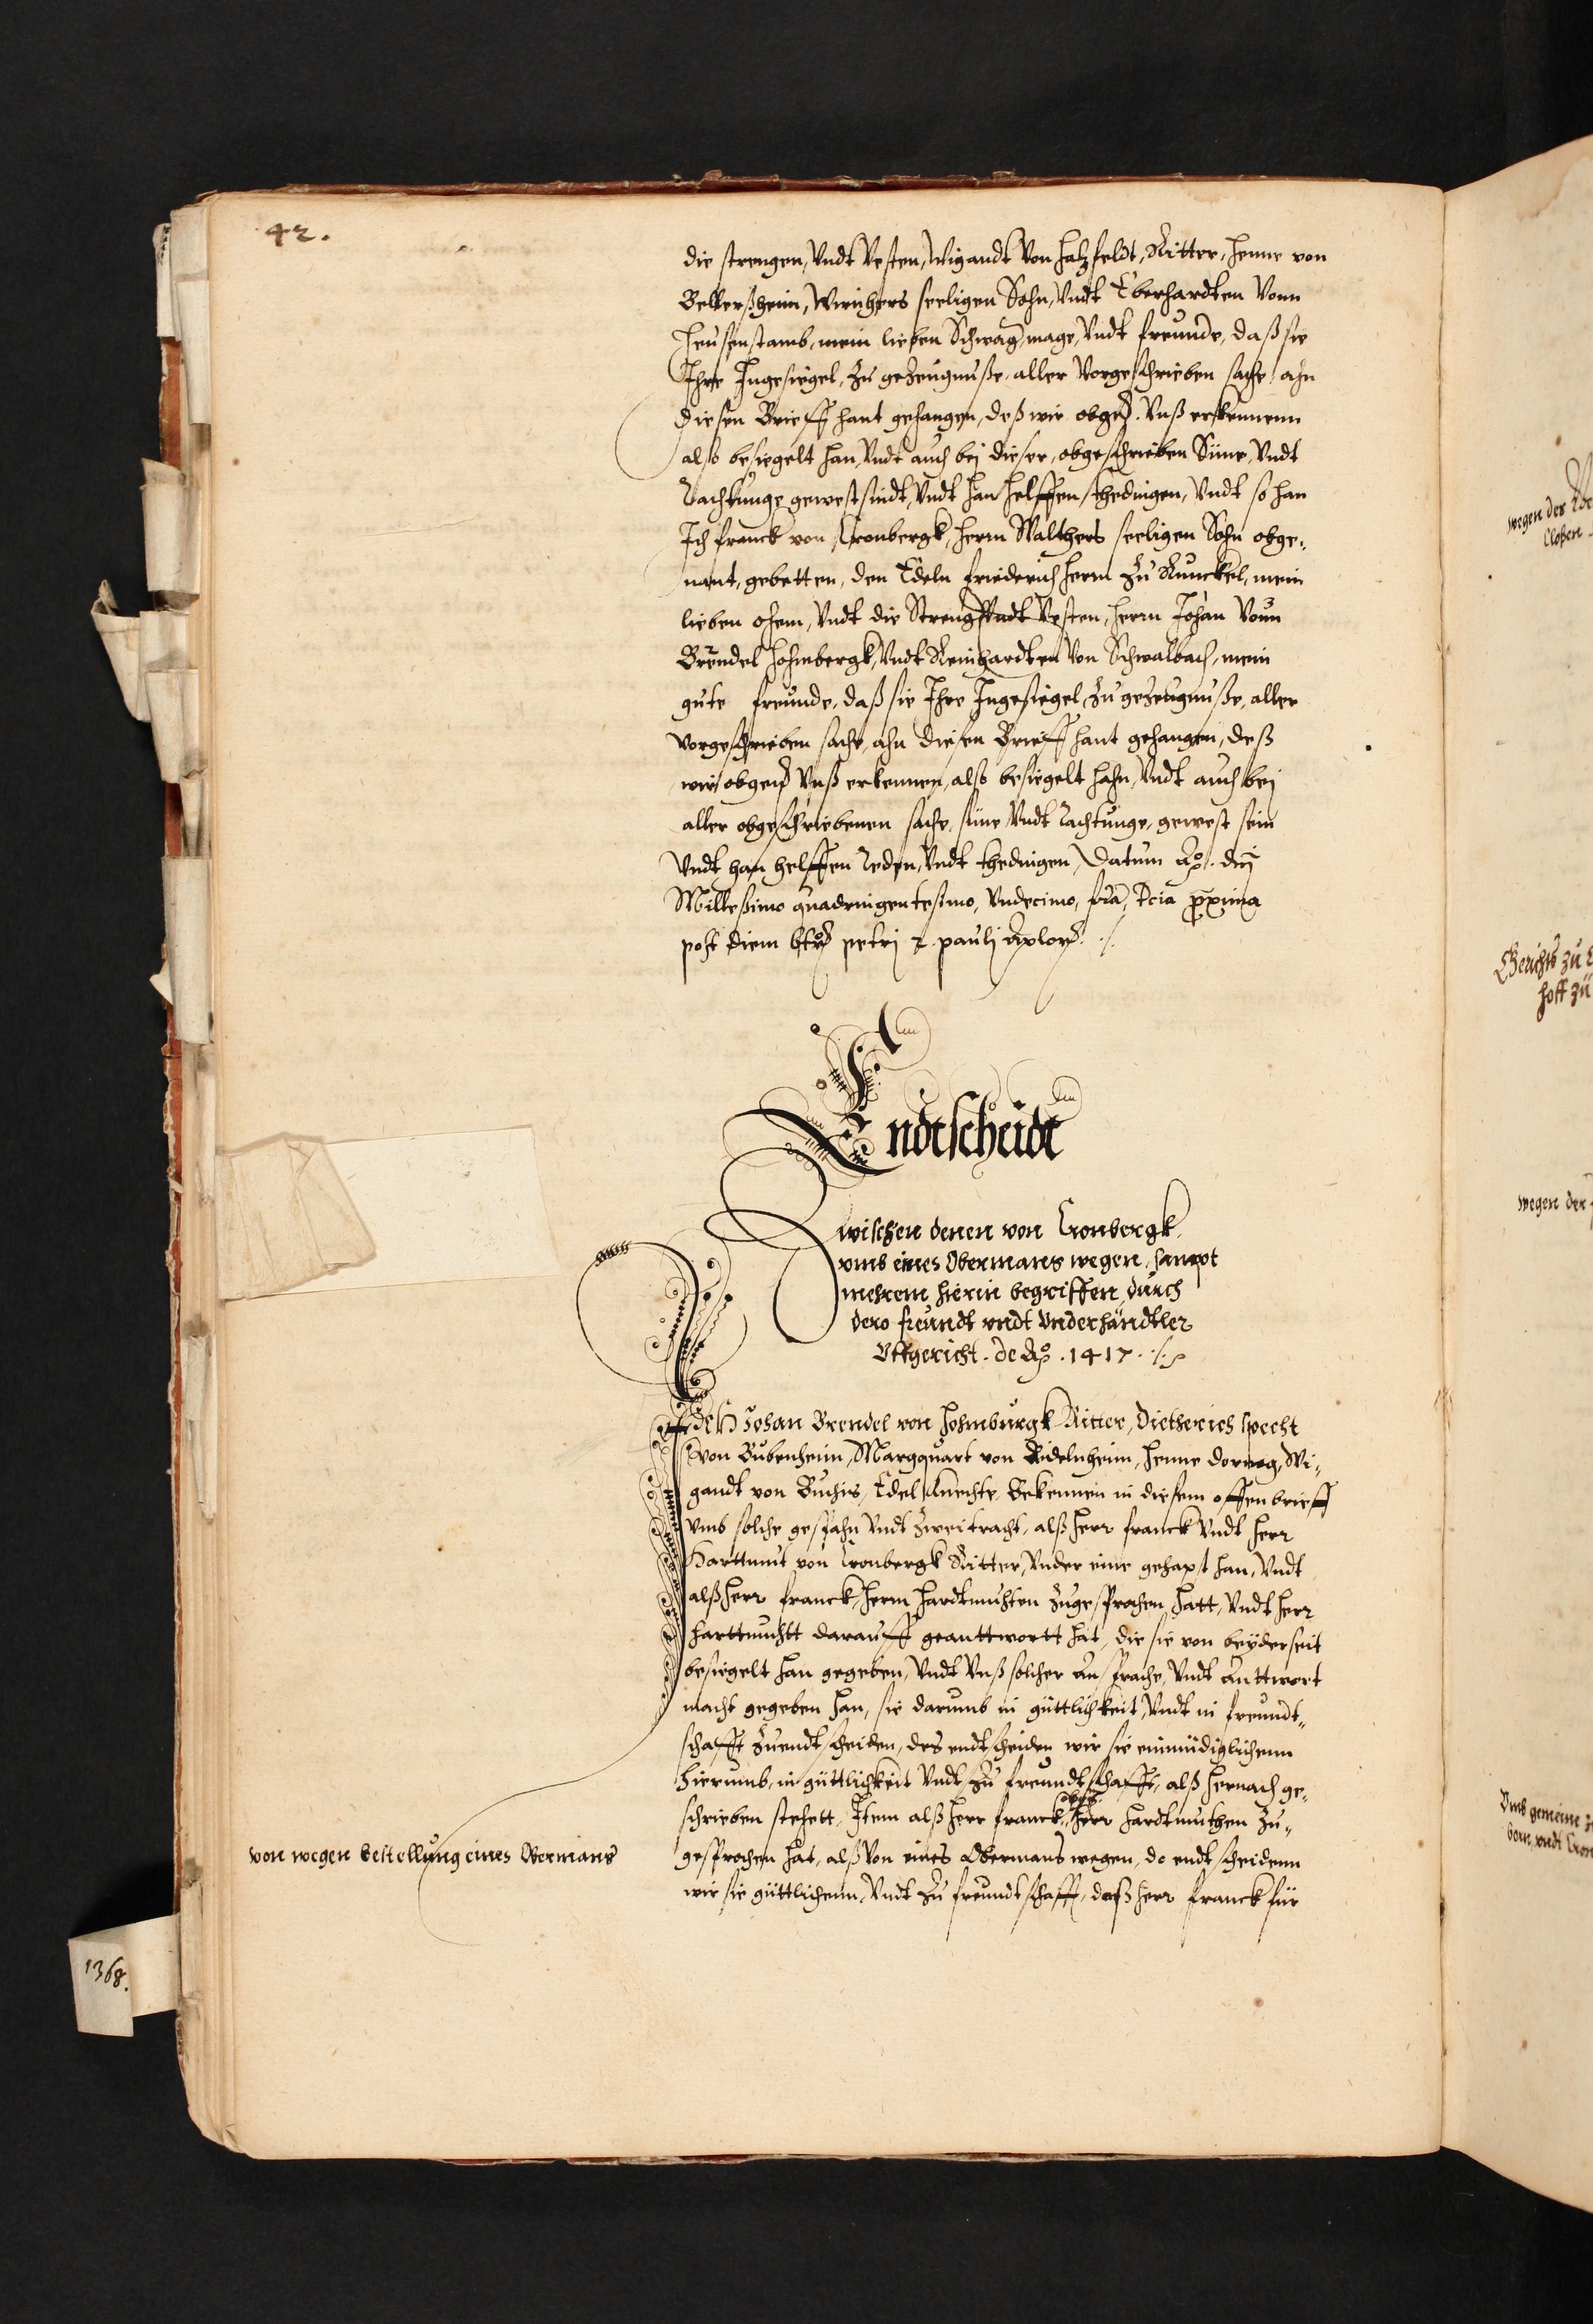 42.
die strengen, Vndt Vesten, Wigandt Von Hatzfeldt, Ritter, Henne von
Bellerßheim, Wernhers seeligen Sohn, Vndt Eberhardten Vonn
Heusenstamb, mein lieben Schwag, mage, Vndt freunde, daß sie
Ihre Ingesiegel, zu gezeugnuße, aller Vorgeschrieben sache, ahn
diesen Brieff hant gehangen, deß wir obgen. Vnß erkennenn
also besiegelt han, Vndt auch bej dieser, obgeschrieben Süne, Vndt
Rachtunge gewest sindt, Vndt han helffen, thedingen, Vndt so han
Ich franck von Cronbergk, Herrn Walthers seeligen Sohn obge-
nant, gebetten, den Edeln friederich Herrn zu Runckel, mein
lieben ohem, Vndt die Streng Vndt Vesten, Herrn Johan Vonn
Brendel Hohmbergk, Vndt Reinhardten Von Schwalbach, mein
gute freunde, daß sie Ihre Ingesiegel, zu gezeugnuße, aller
vorgeschrieben sache, ahn diesen Brieff hant gehangen, deß
wir obgen Vnß erkennen, also besiegelt hahn, Vndt auch bej
aller obgeschriebenen sache, süne Vndt Rachtunge, gewest sein
Vndt han helffen reden, Vndt thedingen, Datum Ao. dnj
Milleßimo quadringentesimo, Vndecimo, fria, tcia proxima
post diem btor petrj et paulj Aplor.
Endtscheidt
Zwischen denen von Cronbergk
vmb eines Obermans wegen, sampt
mehrem hierin begriffen, durch
dero freundt vndt Vnderhändtler
Vffgericht. de Ao. 1417.
Ich Johan Brendel von Hohmburgk Ritter, Dietherich Specht
von Bubenheim, Margquart von Ridelnheim, Henne dorneg, Wi-
gandt von Buches, Edel Knechte, Bekennen in diesem offen brieff
Vmb solche gespahn Vndt zweitracht, alß Herr franck Vndt Herr
Harttmut von Cronbergk Ritter, Vnder eine gehapt han, Vndt
alß Herr franck, Herrn Hardtmuhten zugesprochen hatt, Vndt Herr
Harttmuhtt darauff geanttwortt hat, die sie von beyderseit
besiegelt han gegeben, Vndt Vnß solcher ansprache, Vndt Anttwort
macht gegeben han, sie darumb in güttlichkeit, Vndt in freundt-
schafft zuendtscheiden, des endtscheiden wir sie einmüdiglichenn
hierumb, in güttlichkeit Vndt zu freundtschafft, alß hernach ge-
schrieben stehett, Item alß Herr franck, Herr Hardtmuthen zu-
gesprochen hat, alß Von eines Obermans wegen, do endtscheidenn
wir sie güttlichenn, Vndt zu freundtschafft, daß Herr franck für
von wegen bestellung eines Obermans
1368.
wegen der
Gerichts zu
hoff zu
wegen der
Vmb gemeine